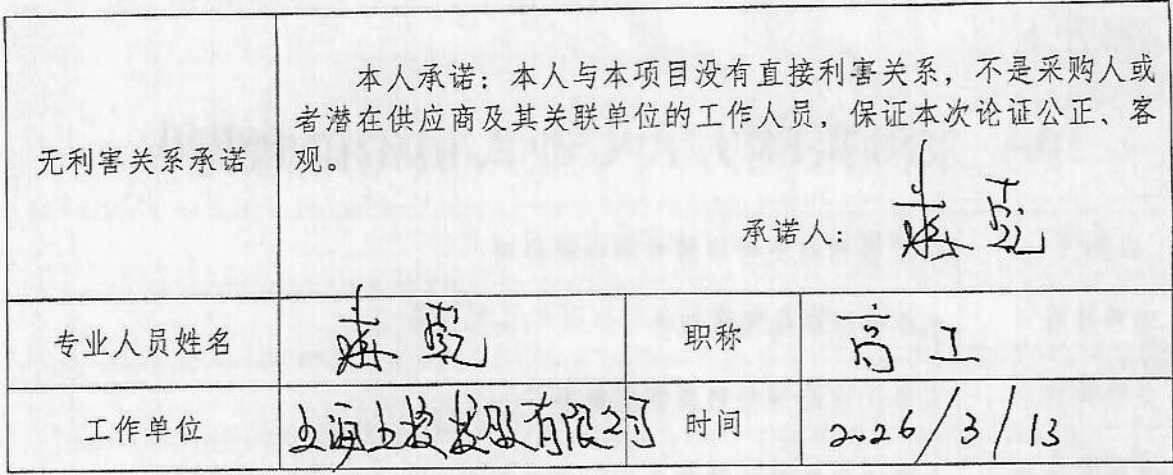 本人承诺：本人与本项目没有直接利害关系，不是采购人或
者潜在供应商及其关联单位的工作人员，保证本次论证公正、客
无利害关系承诺 观。
承诺人：
专业人员姓名 职称 高工
工作单位 上海 有限公司 时间 2026/3/13